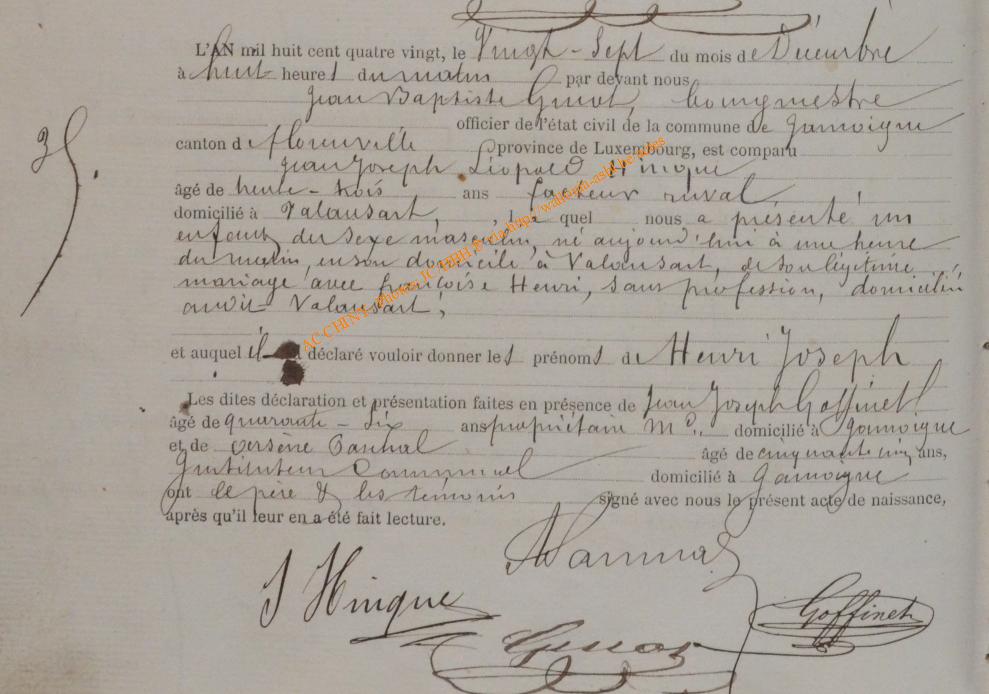 35.
L'AN mil huit cent quatre vingt, le Vingt-Sept du mois de Décembre
à huit heures du matin par devant nous
Jean Baptiste bourgmestre
officier de l'état civil de la commune de Jamoigne
canton d florenville province de Luxembourg, est comparu
Jean Joseph Léopold Hinque
âgé de trente-trois ans facteur rural,
domicilié à Valansart, lequel nous a présenté un
enfant du sexe masculin, né aujourd'hui à une heure
du matin, en son domicile à Valansart, de son légitime
mariage avec françoise Henri, sans profession, domiciliée
audit Valansart,
et auquel il a déclaré vouloir donner les prénoms de Henri Joseph
Les dites déclaration et présentation faites en présence de Jean Joseph Goffinet
âgé de quarante-six ans propriétaire Md. domicilié à Jamoigne
et de arsène âgé de cinquante cinq ans,
Instituteur Communal domicilié à Jamoigne
ont le père & les témoins signé avec nous le présent acte de naissance,
après qu'il leur en a été fait lecture.
J Hinque
Goffinet
AC CHINY, photos JC HBH & via http://wallonia-asbl.be/sites